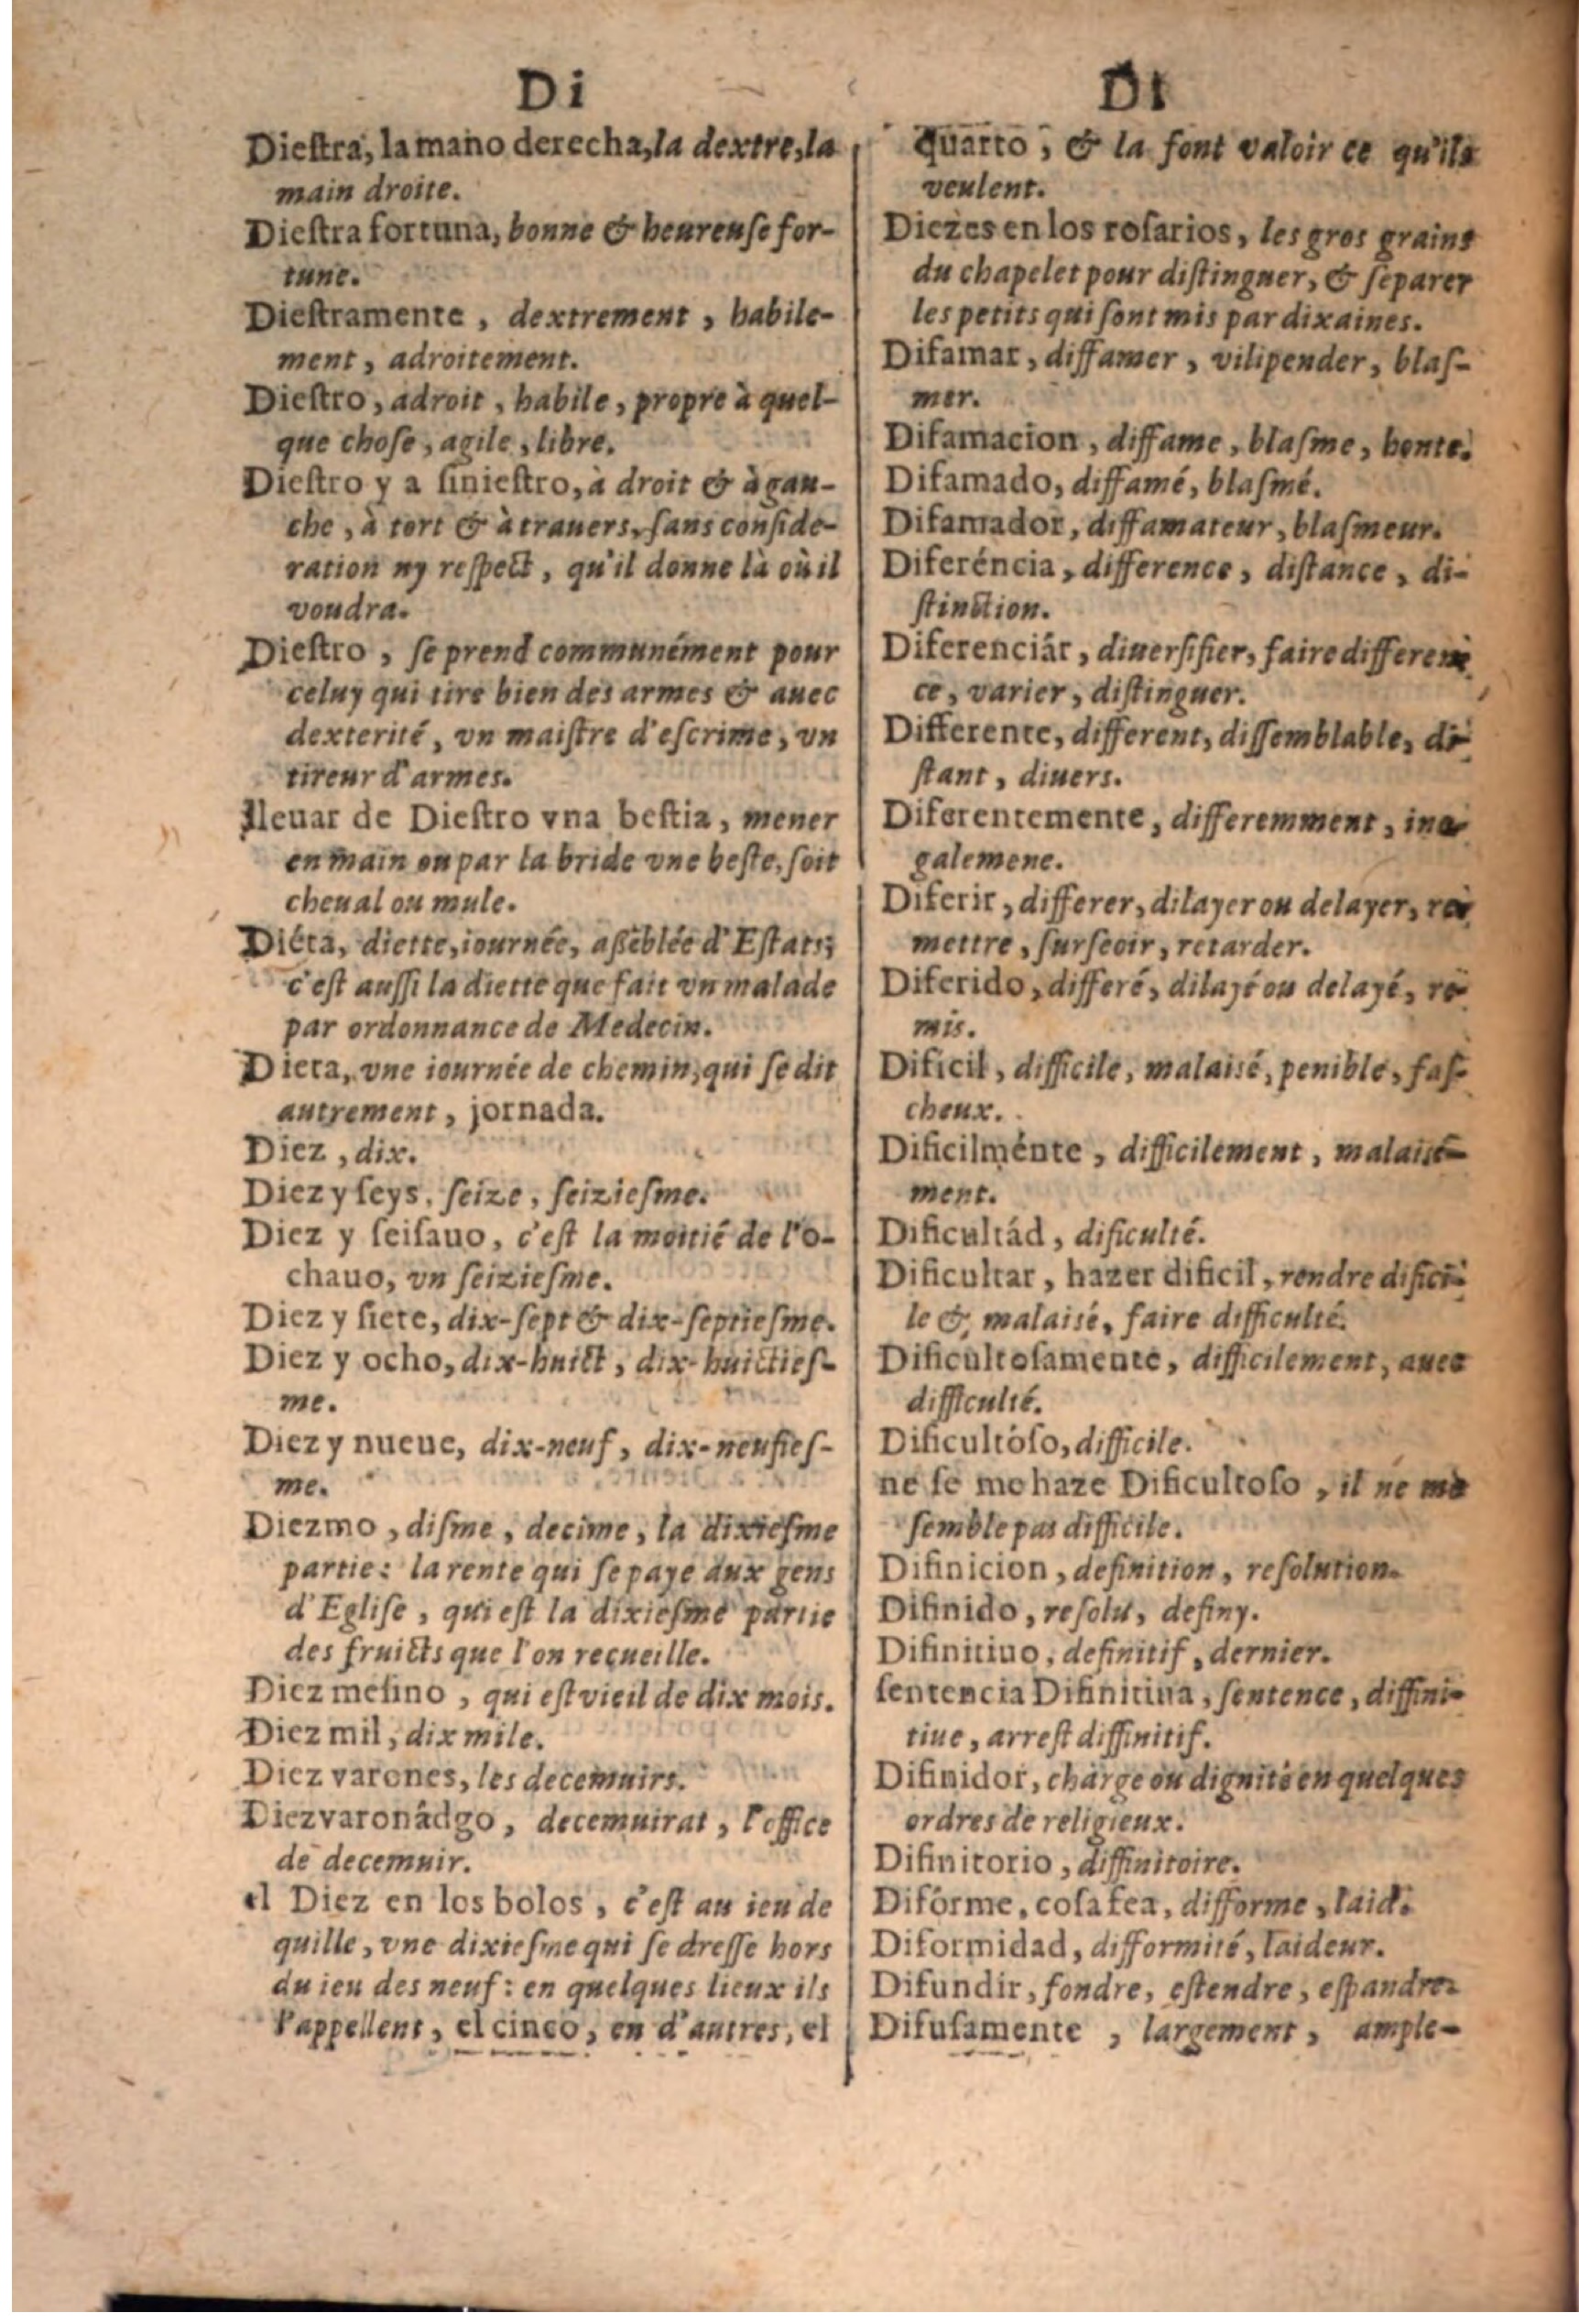 Di
Diestra, la mano derecha, la dextre, la
main droite.
Diestra fortuna, bonne & heureuse for-
tune.
Diestramente, dextrement, habile-
ment, adroitement.
Diestro, adroit, habile, propre à quel-
que chose, agile, libre.
Diestro y a siniestro, à droit & à gau-
che, à tort & à trauers, sans conside-
ration ny respect, qu'il donne là où il
voudra.
Diestro, se prend communément pour
celuy qui tire bien des armes & auec
dexterité, vn maistre d'escrime, vn
tireur d'armes.
lleuar de Diestro vna bestia, mener
en main ou par la bride vne beste, soit
cheual ou mule.
Diéta, diette, iournée, assẽblée d'Estats;
c'est aussi la diette que fait vn malade
par ordonnance de Medecin.
Dieta, vne iournée de chemin, qui se dit
autrement, jornada.
Diez, dix.
Diez y seys, seize, seiziesme.
Diez y seisauo, c'est la moitié de l'o-
chauo, vn seiziesme.
Diez y siete, dix-sept & dix-septiesme.
Diez y ocho, dix-huict, dix-huicties-
me.
Diez y nueue, dix-neuf, dix-neufies-
me.
Diezmo, disme, decime, la dixiesme
partie: la rente qui se paye aux gens
d'Eglise, qui est la dixiesme partie
des fruicts que l'on recueille.
Diez mesino, qui est vieil de dix mois.
Diez mil, dix mile.
Diez varones, les decemuirs.
Diezvaronâdgo, decemuirat, l'office
de decemuir.
el Diez en los bolos, c'est au ieu de
quille, vne dixiesme qui se dresse hors
du ieu des neuf: en quelques lieux ils
l'appellent, el cinco, en d'autres, el
Di
quarto, & la font valoir ce qu'ils
veulent.
Diezes en los rosarios, les gros grains
du chapelet pour distinguer, & separer
les petits qui sont mis par dixaines.
Difamar, diffamer, vilipender, blas-
mer.
Difamacion, diffame, blasme, honte.
Difamado, diffamé, blasmé.
Difamador, diffamateur, blasmeur.
Diferéncia, difference, distance, di-
stinction.
Diferenciâr, diuersifier, faire differen-
ce, varier, distinguer.
Differente, different, dissemblable, di-
stant, diuers.
Diferentemente, differemment, ine-
galemene.
Diferir, differer, dilayer ou delayer, re-
mettre, surseoir, retarder.
Diferido, differé, dilayé ou delayé, re-
mis.
Dificil, difficile, malaisé, penible, fas-
cheux.
Dificilménte, difficilement, malaisé-
ment.
Dificultád, dificulté.
Dificultar, hazer dificil, rendre difici-
le & malaisé, faire difficulté.
Dificultosamente, difficilement, auec
difficulté.
Dificultóso, difficile.
ne se me haze Dificultoso, il ne me
semble pas difficile.
Difinicion, definition, resolution.
Difinido, resolu, definy.
Difinitiuo, definitif, dernier.
sentencia Difinitiua, sentence, diffini-
tiue, arrest diffinitif.
Difinidor, charge ou dignité en quelques
ordres de religieux.
Difinitorio, diffinitoire.
Difórme, cosa fea, difforme, laid.
Diformidad, difformité, laideur.
Difundir, fondre, estendre, espandre.
Difusamente, largement, ample-